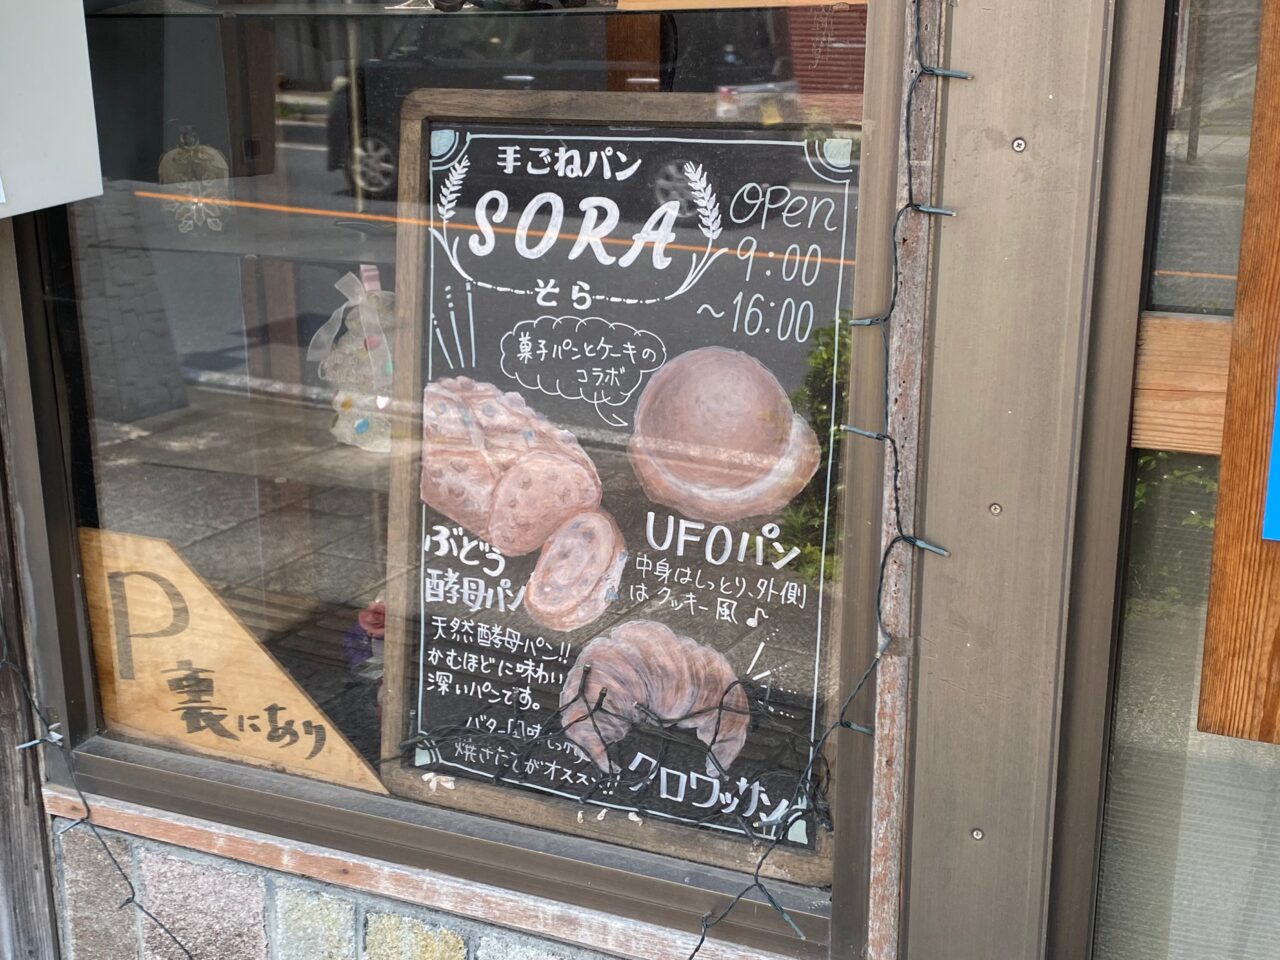 手ごねパン
SORA
そら
OPEN
9:00
~16:00
菓子パンとケーキの
コラボ
UFOパン
中身はしっとり、外側
はクッキー風♪
ぶどう
酵母パン
天然酵母パン!!
かむほどに味わい
深いパンです。
バター風味
焼きたてがオススメ!!
クロワッサン
P
裏にあり